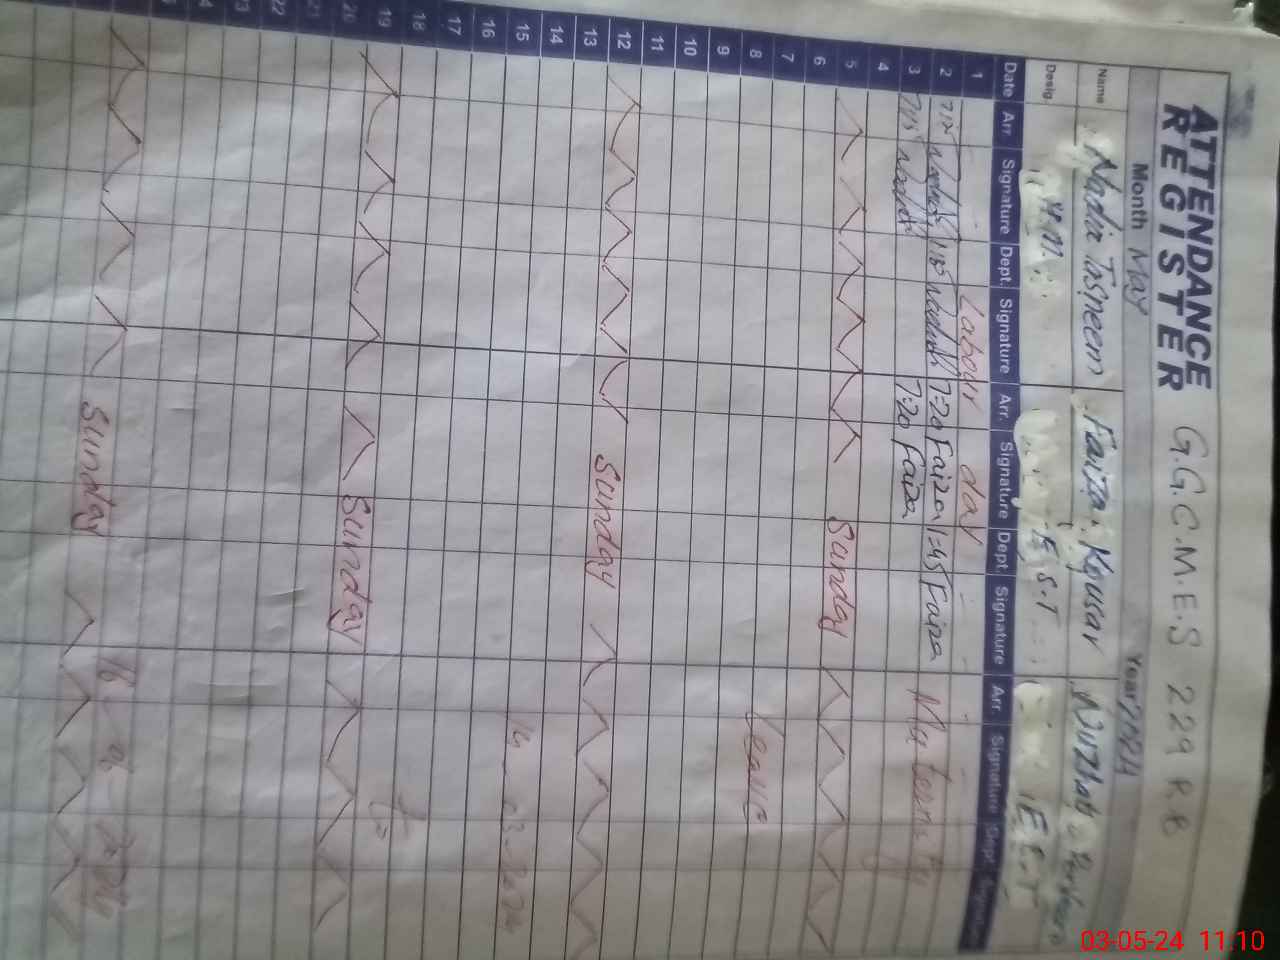 ATTENDANCE
REGISTER
G.G.C.M.E.S 229 R.B
Month May
Year 2024
Name Nadia Tasneem Faiza Kousar Nuzhat
Desig. H.M. E.S.T E.S.T
Date Arr. Signature Dept. Signature Arr. Signature Dept. Signature Arr. Signature Dept. Signature
1 Labour day
2 7:20 Faiza 1=45 Faiza
3 7:15 7:20 Faiza Maternity
4
5 Sunday
6
7
8 Leave
9
10
11
12 Sunday
13
14
15
16
17
18
19 To
20 Sunday
21
22
23
Sunday
03-05-24 11:10